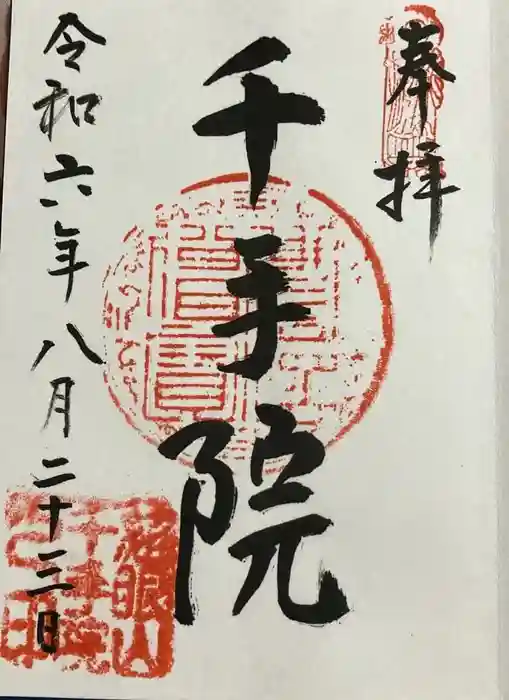 奉拝
千手院
令和六年八月二十三日